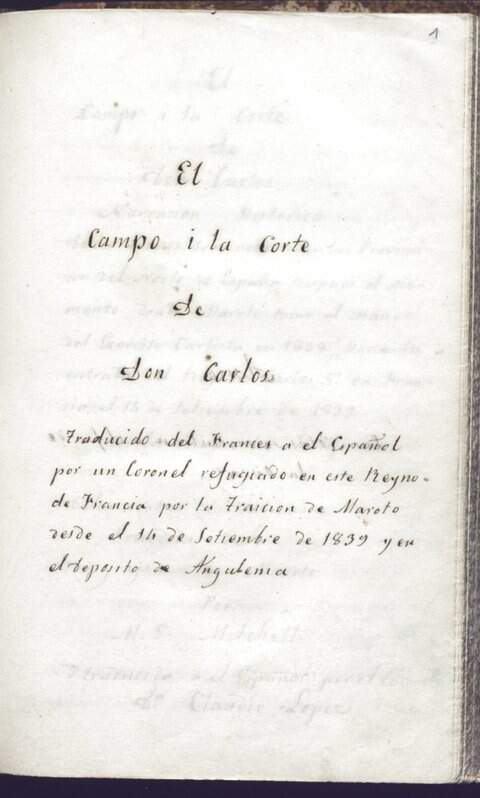 1
El
Campo i la Corte
de
don Carlos
Traducido del Frances a el Español
por un Coronel refugiado en este Reyno
de Francia por la Traicion de Maroto
desde el 14 de Setiembre de 1839 y en
el deposito de Angulema